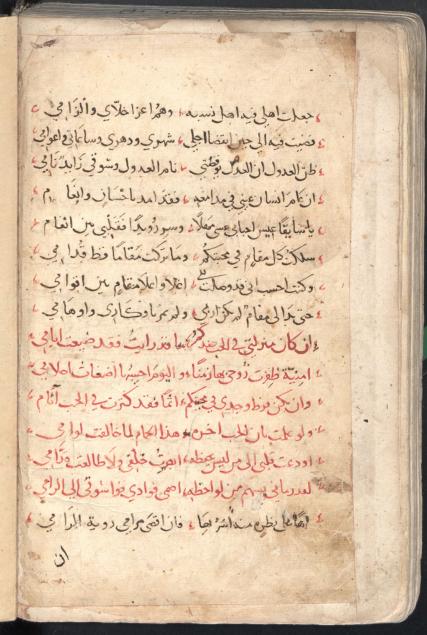 جعلت اهلي فيه اهل نسبه وهم اعز اخلاّي والزامي
قضيت فيه الى حين انقضا اجلي شهري ودهري وساعاتي واعوامي
ظن العدول ان العدل يوقفني نام العدول وشوقي زايد نامي
ان عام انسان عيني في مدامعه فقد امد باحسان وانعام
يا سايقا عيس احبابي عسى مهلا وسر رويدا فقلبي بين انعام
سلكت كل مقام في محبتكم وما تركت مقاما قط قدامي
وكنت احسب اني قد وصلت الى اعلا واغلا مقام بين اقوامي
حتى بدا لي مقام لم يكن اربي ولم يمر بافكاري واوهامي
ان كان منزلتي في الحب عندكم ما قد رايت فقد ضيعت ايامي
امنية ظفرت روحي بها زمنا واليوم احسبها اضغاث احلامي
وان يكن فرط وجدي في محبتكم اثما فقد كثرت في الحب آثامي
ولو علمت بان الحب اخره هذا الحمام لما خالفت لوامي
اودعت قلبي الى من ليس يحفظه ابصرت خلفي ولا طالعت قدامي
لقد رماني بسهم من لواحظه اصمى فوادي فوا شوقي الى الرامي
اها على نظرة منه اسر بها فان اقصى مرامي روية الرامي
ان